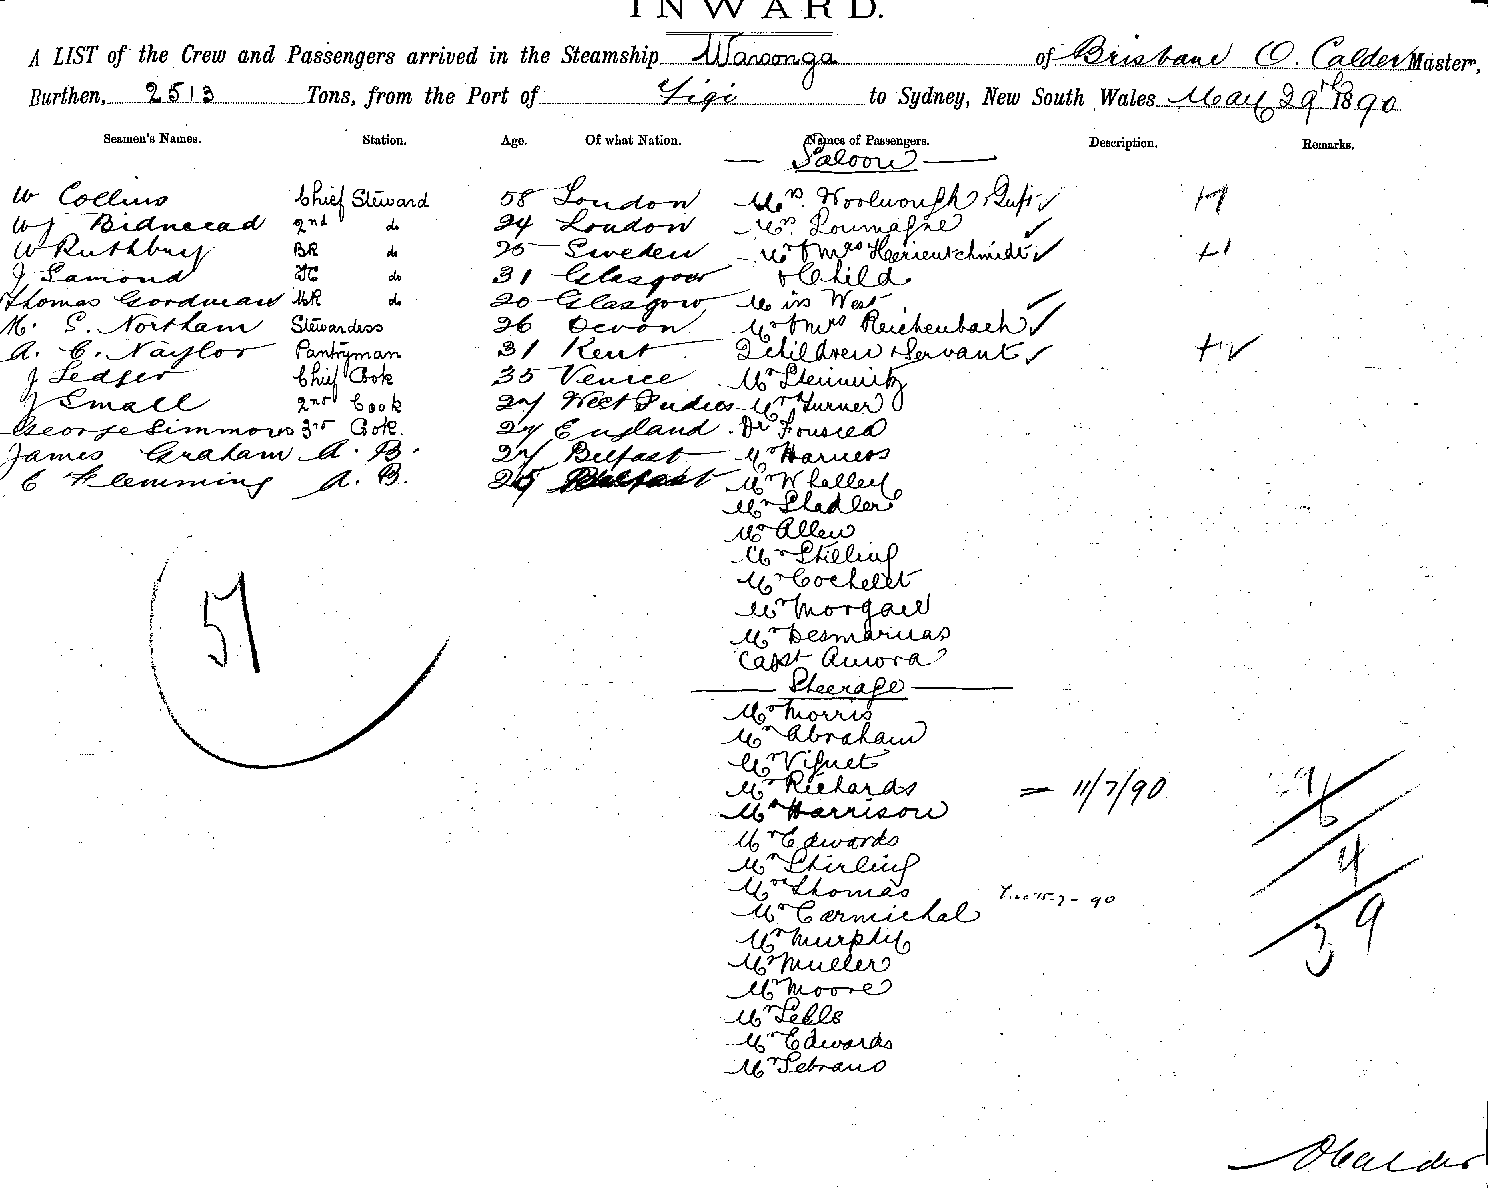 INWARD.
A LIST of the Crew and Passengers arrived in the Steamship Waroonga of Brisbane O. Calder Master,
Burthen, 2513 Tons, from the Port of Figi to Sydney, New South Wales May 29th 1890
Seamen's Names. Station. Age. Of what Nation. Names of Passengers. Description. Remarks.
Saloon
W Collins Chief Steward 58 London
WJ Bidmead 2nd do 24 London
W Ruthbury BR do 25 Sweden Mr & Mrs
J Lamond do 31 Glasgow & Child
Thomas Goodman do 20 Glasgow West
M. S. Northam Stewardess 26 Devon Mr & Mrs Reichenbach
A. E. Naylor Pantryman 31 Kent 2 children & Servant
J Ledger Chief Cook 35 Venice Mr
J Small 2nd Cook 27 West Indies Mr Turner
George Simmons 3rd Cook. 27 England Dr
James Graham A. B. 27 Belfast Mr Harness
C Flemming A. B. 25 Belfast Mr Whalley
Mr Stadler
Mr Allen
Mr Stilling
Mr Cochelet
Mr Morgan
Mr
Capt Aurora
Steerage
Mr Morris
Mr Abraham
Mr Viguet
Mr Richards = 11/7/90
Mr Harrison
Mr Edwards
Mr Stirling
Mr Thomas
Mr Carmichal
Mr Murphy
Mr Muller
Mr Moore
Mr
Mr Edwards
Mr Lebrano
51
4
39
O Calder